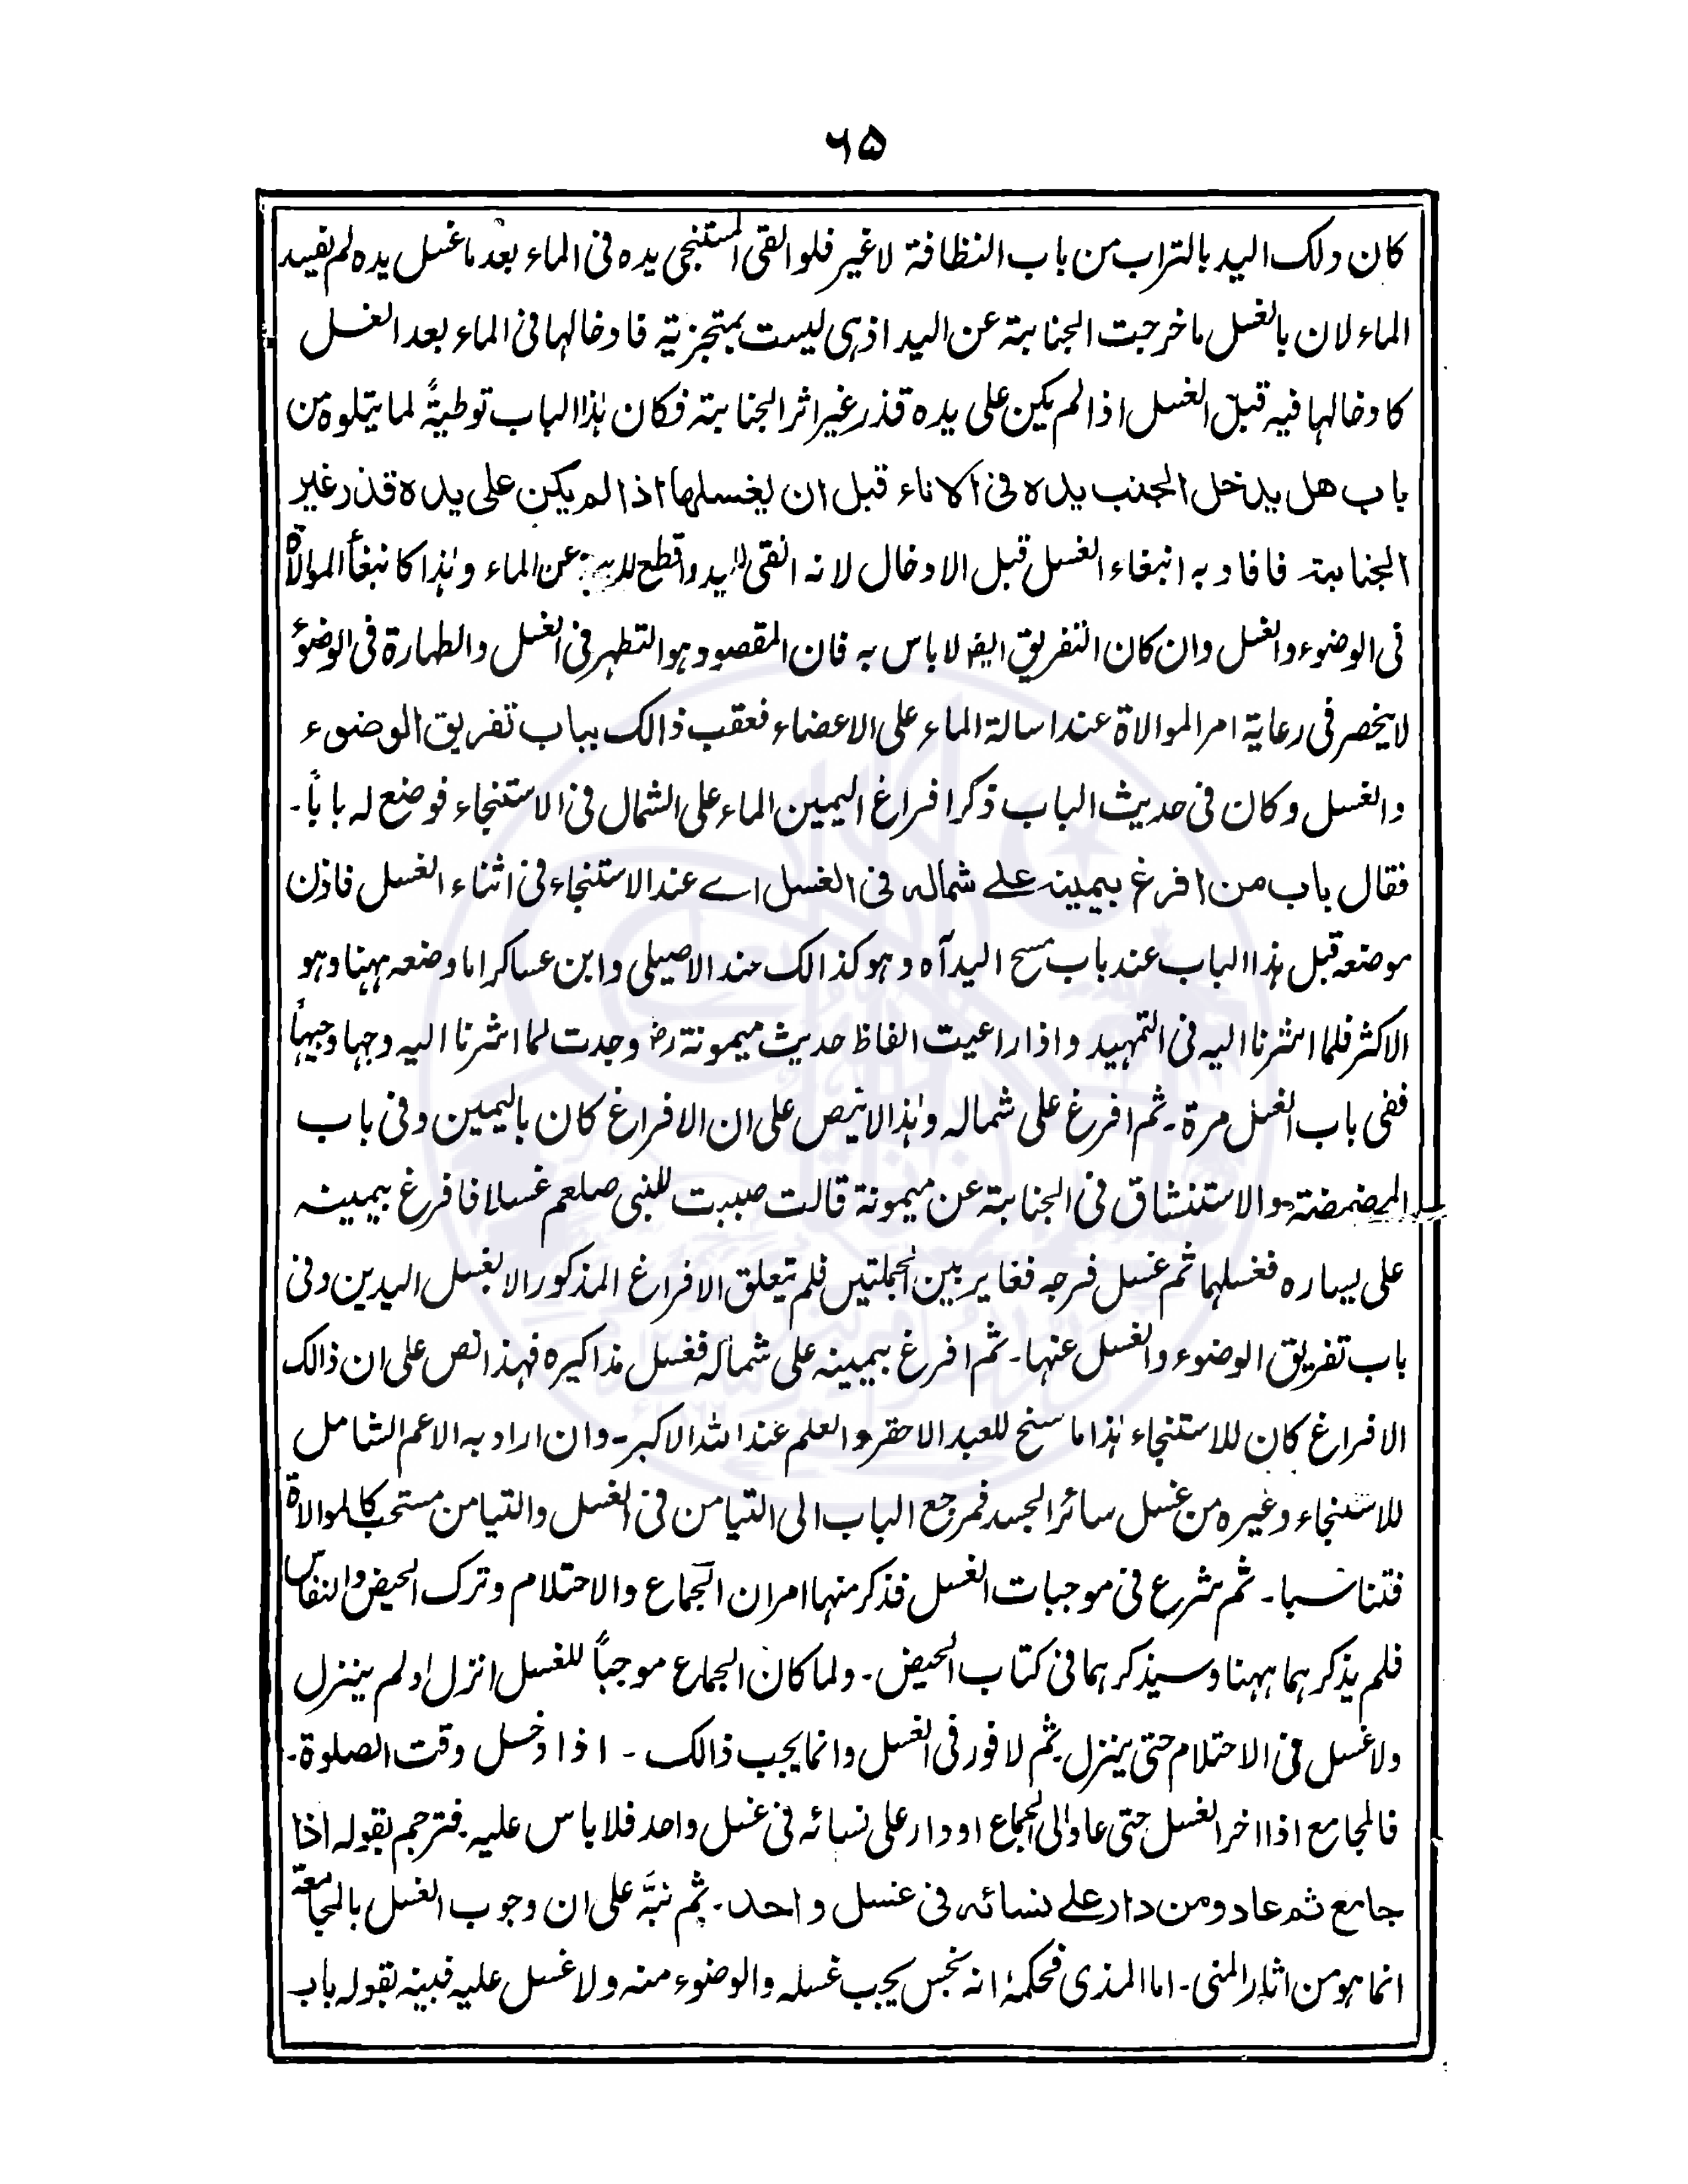 ٦٥
كان دلك اليد بالتراب من باب النظافة لا غير فلو القى المستنجى يده فى الماء بعد ما غسل يده لم تفسد
الماء لان بالغسل ما خرجت الجنابة عن اليد اذ هى ليست بمتجزية فادخالها فى الماء بعد الغسل
كادخالها فيه قبل الغسل اذا لم يكن على يده قذر غير اثر الجنابة فكان هذا الباب توطيةً لما يتلوه من
باب هل يدخل الجنب يده فى الاناء قبل ان يغسلها اذا لم يكن على يده قذر غير
الجنابة فافاد به انبغاء الغسل قبل الادخال لانه انقى لليد واقطع عن الماء وهذا كانبغاء الموالاة
فى الوضوء والغسل وان كان التفريق ايضا لا باس به فان المقصود هو التطهر فى الغسل والطهارة فى الوضوء
لا ينحصر فى رعاية امر الموالاة عند اسالة الماء على الاعضاء فعقب ذالك بباب تفريق الوضوء
والغسل وكان فى حديث الباب ذكر افراغ اليمين الماء على الشمال فى الاستنجاء فوضع له باباً۔
فقال باب من افرغ بيمينه على شماله فى الغسل اے عند الاستنجاء فى اثناء الغسل فاذن
موضعه قبل هذا الباب عند باب مسح اليد آه وهو كذالك عند الاصيلى وابن عساكر اما وضعه ههنا وهو
الاكثر فلما اشرنا اليه فى التمهيد واذا راعيت الفاظ حديث ميمونة رض وجدت لما اشرنا اليه وجها وجيهاً
ففى باب الغسل مرة۔ ثم افرغ على شماله وهذا لا ينص على ان الافراغ كان باليمين وفى باب
المضمضة والاستنشاق فى الجنابة عن ميمونة قالت صببت للنبى صلعم غسلا فافرغ بيمينه
على يساره فغسلهما ثم غسل فرجه فغاير بين الجملتين فلم يتعلق الافراغ المذكور الا بغسل اليدين وفى
باب تفريق الوضوء والغسل عنها۔ ثم افرغ بيمينه على شماله فغسل مذاكيره فهذا نص على ان ذالك
الافراغ كان للاستنجاء هذا ما سنح للعبد الاحقر والعلم عند الله الاكبر۔ وان اراد به الاعم الشامل
للاستنجاء وغيره من غسل سائر الجسد فمرجع الباب الى التيامن فى الغسل والتيامن مستحب كالموالاة
فتناسبا۔ ثم شرع فى موجبات الغسل فذكر منها امران الجماع والاحتلام وترك الحيض والنفاس
فلم يذكر هما ههنا وسيذكر هما فى كتاب الحيض۔ ولما كان الجماع موجباً للغسل انزل او لم ينزل
ولا غسل فى الاحتلام حتى ينزل۔ ثم لا فور فى الغسل وانما يجب ذالك ۔ اذا دخل وقت الصلوة۔
فالمجامع اذا اخر الغسل حتى عاد الى الجماع او دار على نسائه فى غسل واحد فلا باس عليه۔ فترجم بقوله اذا
جامع ثم عاد ومن دار على نسائه فى غسل واحد۔ ثم نبَّه على ان وجوب الغسل بالمجامعة
انما هو من اثار المنى۔ اما المذى فحكمهٗ انه نجس يجب غسله والوضوء منه ولا غسل عليه فبينه بقوله باب